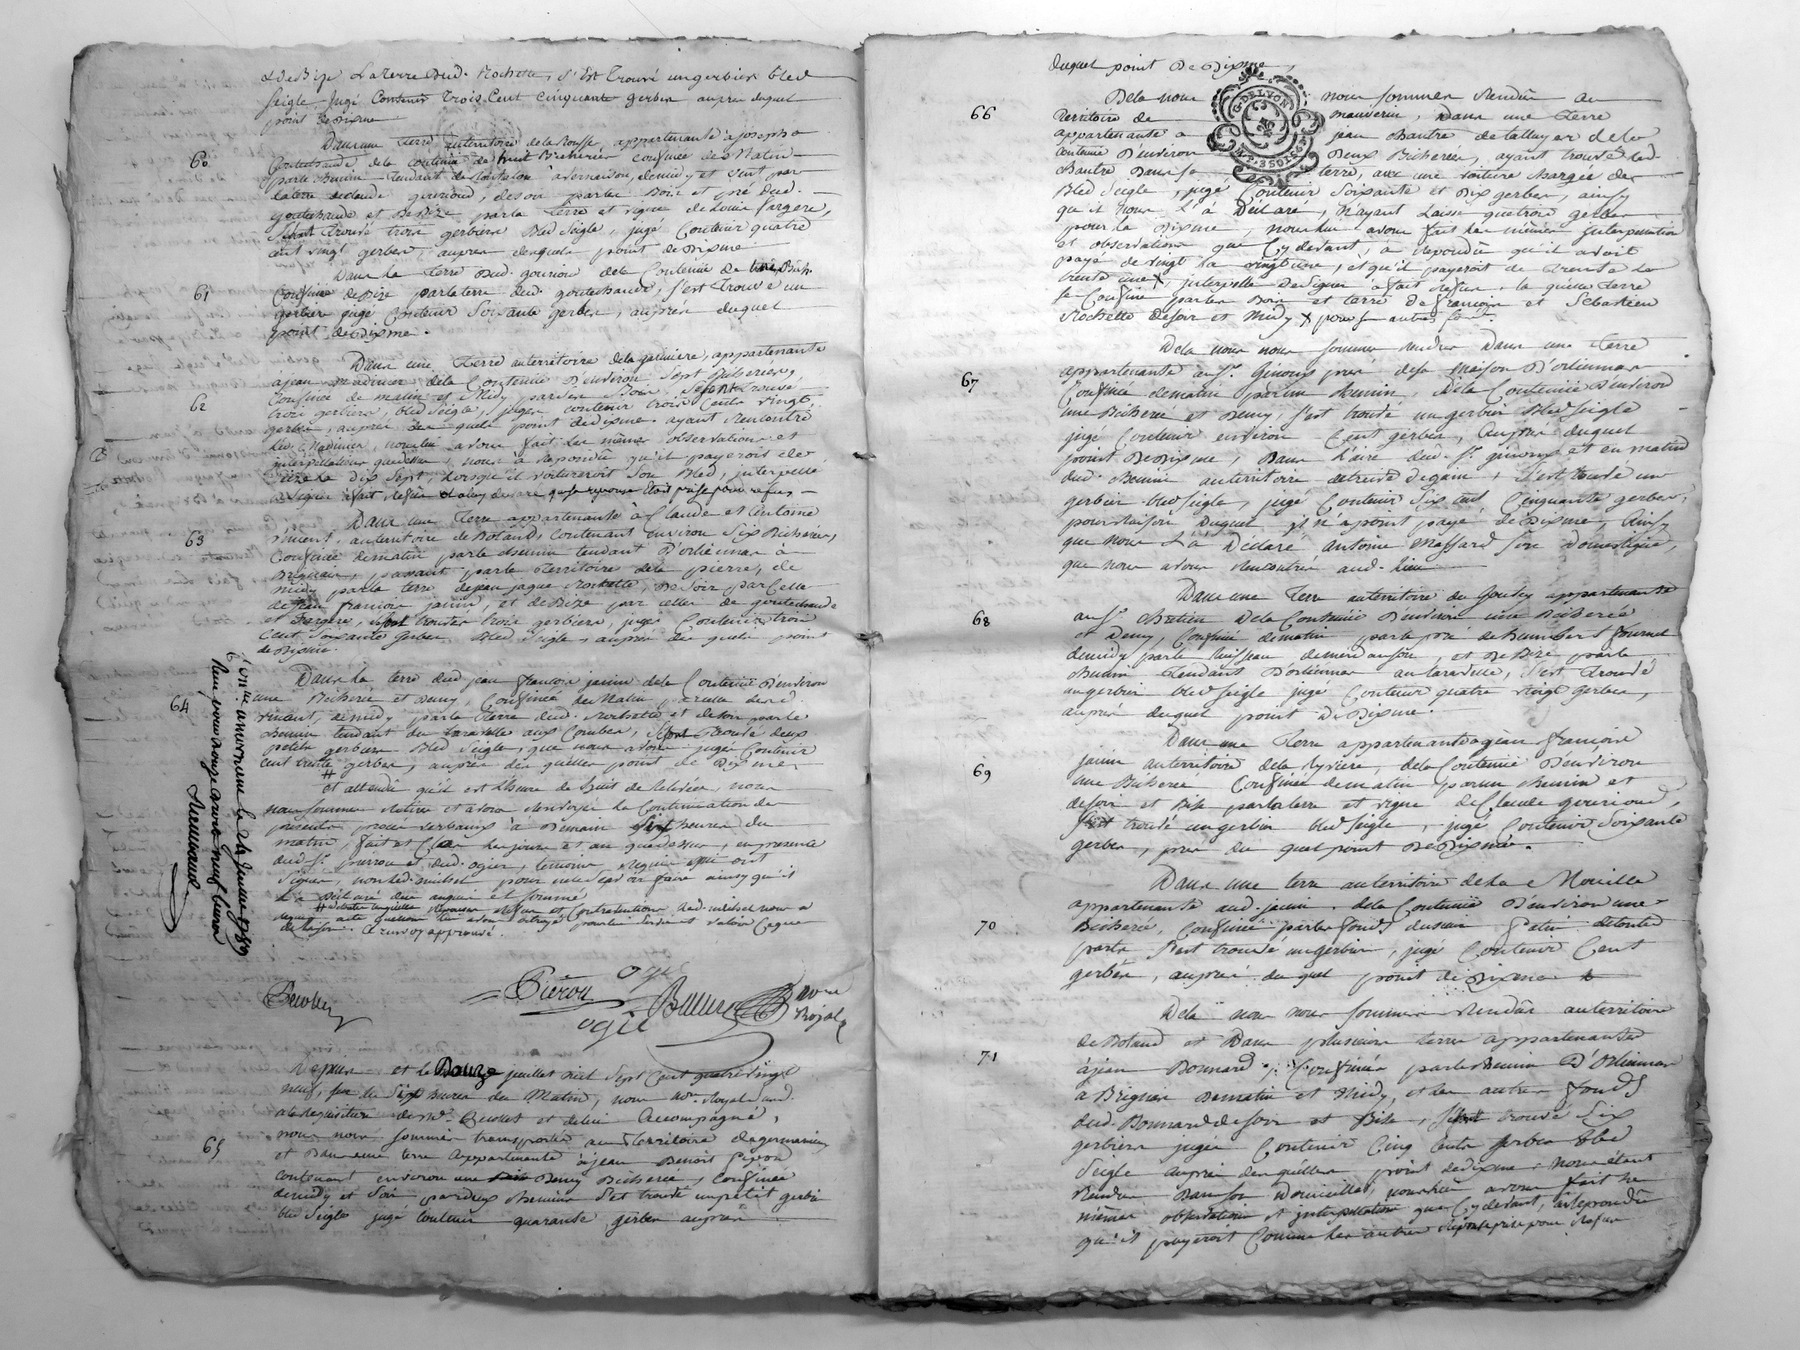 & de Bize La terre dud. Rochette, s'est trouvé un gerbier bled
seigle jugé contenir trois cent cinquante gerbes aupres duquel
point de dixme
60
Dans une terre au territoire de la Rousse, appartenante à joseph
goutechaude de la contenüe de huit Bicherées confinée de Matin
par le chemin tendant de a vernaison, de midy et vent par
la terre de claude gouriond, de soir par les Bois et pré dud.
goutechaude et de Bize par la terre et vigne de Louis fargere,
s'est trouvé trois gerbiers Bled seigle, jugé contenir quatre
cent vingt gerbes, aupres desquels point de dixme
61
Dans la terre dud. gouriou de la contenüe de Bich.
confinée de Bize par la terre dud. goutechaude, s'est trouvé un
gerbier jugé contenir soixante gerbes, aupres duquel
point de dixme.
62
Dans une terre au territoire de la garniere, appartenante
à jean madinier de la contenüe d'environ sept Bicherées,
confinée de matin et Midy par les Bois, s'est trouvé
trois gerbiers, bled seigle, jugés contenir trois cents vingt
gerbes, aupres des quels point de dixme. ayant rencontré
led. Madinier, nous lui avons fait les mêmes observations et
interpellations que dessus, nous à repondu qu'il payeroit de
seize la dix sept, lorsqu'il voitureroit son Bled, interpellé
de signer à fait refus que sa reponse était prise pour refus
63
Dans une terre appartenante à Claude et Antoine
vincent, au territoire de Boland, contenant environ six Bicherées,
confinée de matin par le chemin tendant d'orlienas à
Brignais, passant par le territoire de la pierre, de
midy par la terre de jean jaque Rochette, de soir par celle
de jean françois janin, et de Bize par celles de goutechaude
et fargere, s'est trouvé trois gerbiers, jugé contenir trois
cent soixante gerbes Bled seigle, aupres des quels point
de dixme.
64
Dans la terre dud. jean françois janin de la contenüe d'environ
une Bicherée et demy, confinée de Matin par celle desd.
vincent, de midy par la terre dud. Rochette et de soir par le
chemin tendant du taravelle aux Combes, s'est trouvé deux
petits gerbiers Bled seigle, que nous avons jugé contenir
cent trente gerbes, aupres des quelles point de dixme
# et attendu qu'il est l'heure de huit de relevée nous
nous sommes retirés et avons renvoyé la continuation du
present procès verbaux à demain six heures du
matin, fait et clos les jours et an que dessus, en presence
dud. Sr. pierron et dud. ogier, temoins requis qui ont
signé, non led. milset pour ne le sçavoir faire ainsy qu'il
l'a déclaré de ce enquis et sommé
# de toute laquelle reponse refus et contraventions led. milset nous a
requis acte que nous lui avons octroyé pour lui servir et valoir ce que
de raison. & renvoy approuvé.
Cné a mornant le 24 juillet 1789
Reçu pour douze avoit neuf livres
Pierron
ogié
Royal
Dejour et le Douze juillet mil sept cent quatre vingt
neuf, sur les six heures du Matin, nous No.re Royal aud.
a la Requisition dud. Sr. et de lui accompagné,
65
nous nous sommes transportés au territoire de germanieu
et dans une terre appartenante à jean Benoit Pipon
contenant environ une demy Bicherée, confinée
de midy et soir par deux chemins s'est trouvé un petit gerbier
bled seigle jugé contenir quarante gerbes aupres
duquel point de dixme,
G. DE LYON
66
Dela nous nous sommes rendus au
territoire de mauverin, dans une terre
appartenante à jean Bautre de tallayer de la
contenüe d'environ deux Bicherées, ayant trouvé led.
Bautre dans sa terre, avec une voiture chargée de
Bled seigle, jugé contenir soixante et dix gerbes, ainsy
qu'il nous l'à déclaré, n'ayant laissé que trois gerbes
pour la dixme, nous lui avons fait les mêmes interpellation
et observations que cy devant, a repondu qu'il avoit
payé de vingt la vingt une, et qu'il payeroit de trente la
trente une X, interpellé de signer à fait refus, la quelle terre
se confine par les Bois et terre de françois et Sebastien
Rochette de soir et midy X
67
Dela nous nous sommes rendus dans une terre
appartenante au Sr. Ginoux près de sa maison d'orlienas
confinée de matin par un chemin, de la contenüe d'environ
une Bicherée et demy, s'est trouvé un gerbier bled seigle
jugé contenir environ cent gerbes, aupres duquel
point de dixme, dans l'aire dud. Sr. ginoux et en matin
dud. chemin au territoire de s'est trouvé un
gerbier bled seigle, jugé contenir six cent cinquante gerbes,
pour raison duquel il n'a point payé de dixme, ainsy
que nous l'à déclaré antoine massard son domestique,
que nous avons rencontré aud. lieu
68
Dans une terre au territoire du Goutey appartenante
au Sr. de la contenüe d'environ une Bicherée
et demy, confinée de matin par le pré de humbert fournel
de midy par le ruisseau de merdanson, et de Bize par le
chemin tendant d'orlienas au taravelle, s'est trouvé
un gerbier bled seigle jugé contenir quatre vingt gerbes,
aupres duquel point de dixme.
69
Dans une terre appartenante à jean françois
janin au territoire de la de la contenüe d'environ
une Bicherée confinée de matin par un chemin et
de soir et Bise par la terre et vigne de Claude gouriond,
s'est trouvé un gerbier bled seigle, jugé contenir soixante
gerbes, pres du quel point de dixme.
70
Dans une terre au territoire de la Mouille
appartenante aud. janin, de la contenüe d'environ une
Bicherée, confinée par les fonds du sieur de toutes
parts s'est trouvé un gerbier, jugé contenir cent
gerbes, aupres du quel point de dixme
71
Dela nous nous sommes rendus au territoire
de Boland et dans plusieurs terres appartenantes
à jean Bonnard, confinées par le chemin d'Orlienas
à Brignais de matin et midy, et les autres fonds
dud. Bonnard de soir et Bise, s'est trouvé six
gerbiers jugés contenir cinq cents gerbes bled
seigle aupres desquelles point de dixme. nous étant
rendus dans son domicille, nous lui avons fait les
mêmes observations et interpellations que cy devant, à repondu
qu'il payeroit comme les autres reponse prise pour refus